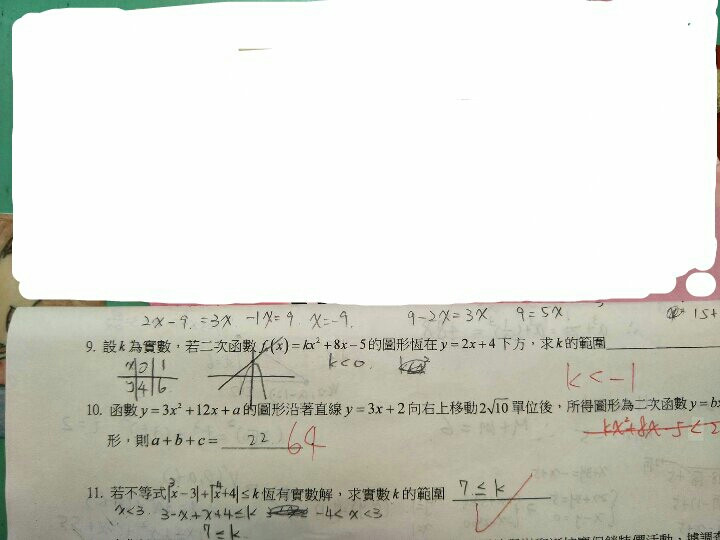 2x-9 =3x -1x=9. x=-9. 9-2x=3x 9=5x
9. 設k為實數，若二次函數f(x)=kx²+8x-5的圖形恆在y=2x+4下方，求k的範圍
x 0 1 k<0
y 4 6 k<-1
10. 函數y=3x²+12x+a的圖形沿著直線y=3x+2向右上移動2√10單位後，所得圖形為二次函數y=bx
kx²+8x-5<2
形，則a+b+c= 22 64
11. 若不等式|x-3|+|x+4|≤k恆有實數解，求實數k的範圍 7≤k
x<3 3-x+x+4≤k -4<x<3
7≤k